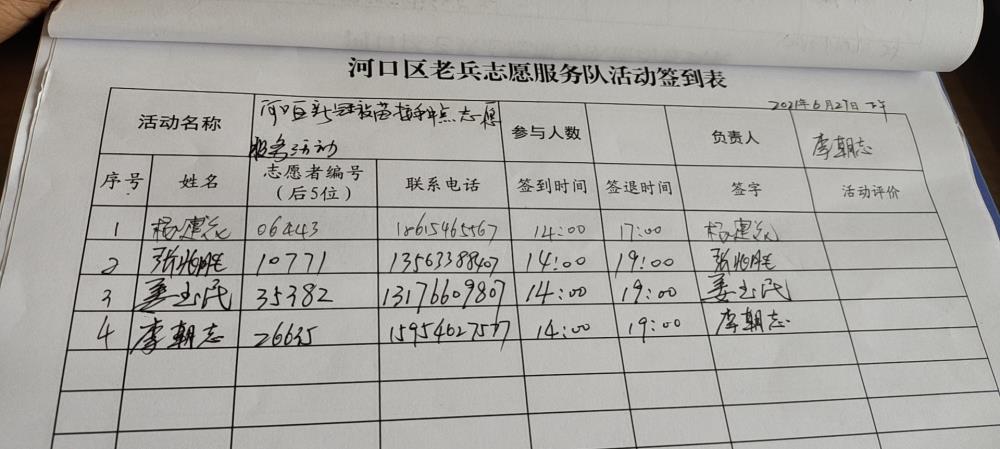 河口区老兵志愿服务队活动签到表
2021年6月27日 下午
活动名称 河口区新冠疫苗接种点志愿服务活动 参与人数 负责人 李朝志
序号 姓名 志愿者编号（后5位） 联系电话 签到时间 签退时间 签字 活动评价
1 杨建 06443 18615465567 14:00 17:00 杨建
2 张兆胜 10771 13563388407 14:00 19:00 张兆胜
3 姜玉民 35382 13176609807 14:00 19:00 姜玉民
4 李朝志 26635 14:00 19:00 李朝志